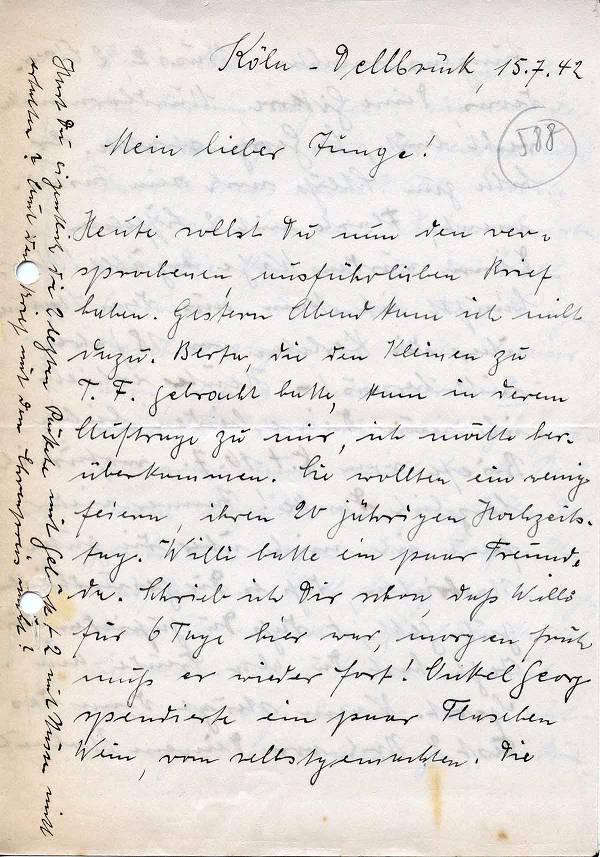 Köln - Dellbrück, 15.7.42
588
Mein lieber Junge!
Heute sollst Du nun den ver-
sprochenen, ausführlichen Brief
haben. Gestern Abend kam ich nicht
dazu. Berta, die den Kleinen zu
T. F. gebracht hatte, kam in deren
Auftrage zu mir, ich möchte her-
überkommen. Sie wollten ein wenig
feiern, ihren 20 jährigen Hochzeits-
tag. Willi hatte ein paar Freunde
da. Schrieb ich Dir schon, daß Willi
für 6 Tage hier war, morgen früh
muß er wieder fort! Onkel Georg
spendierte ein paar Flaschen
Wein, vom selbstgemachten. Die
Hast Du eigentlich die letzten Pakete mit + 2 mit Nüssen nicht
erhalten? Und den Brief mit dem nicht?